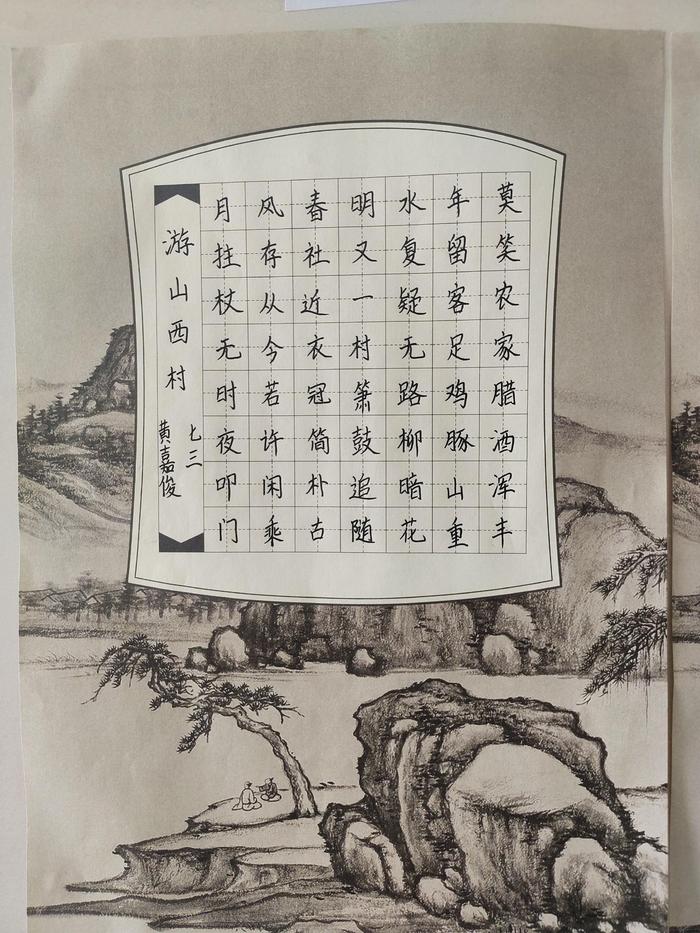 莫笑农家腊酒浑丰
年留客足鸡豚山重
水复疑无路柳暗花
明又一村箫鼓追随
春社近衣冠简朴古
风存从今若许闲乘
月拄杖无时夜叩门
游山西村
七三
黄嘉俊